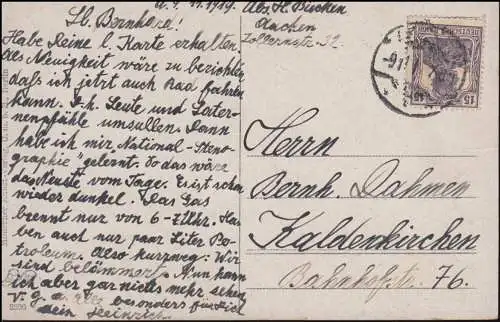 d. 9. 11. 1919. Abs. H. Bücken
Aachen
Zollernstr. 32
Lb. Bernhard!
Habe Deine l. Karte erhalten.
Als Neuigkeit wäre zu berichten
daß ich jetzt auch Rad fahren
kann. D.h. Leute und Later-
nenpfähle umsullen. Dann
habe ich mir National-Steno-
graphie gelernt. So das wäre
das Neuste vom Tage. Es ist schon
wieder dunkel. Das Gas
brennt nur von 6-7 Uhr. Ha-
ben auch nur paar Liter Pe-
troleum. Also kurzweg: Wir
sind belämmert. Nun kann
ich aber gar nichts mehr sehen
V. g. a. besonders für Dich
dein Heinrich
Herrn
Bernh. Dahmen
Kaldenkirchen
Bahnhofst. 76.
DEUTSCHES REICH
15
2336